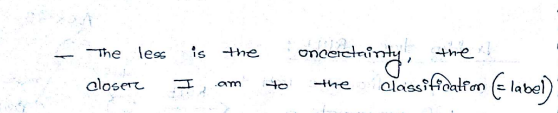 - The less is the oncertainty, the
closer I am to the classification (= label)